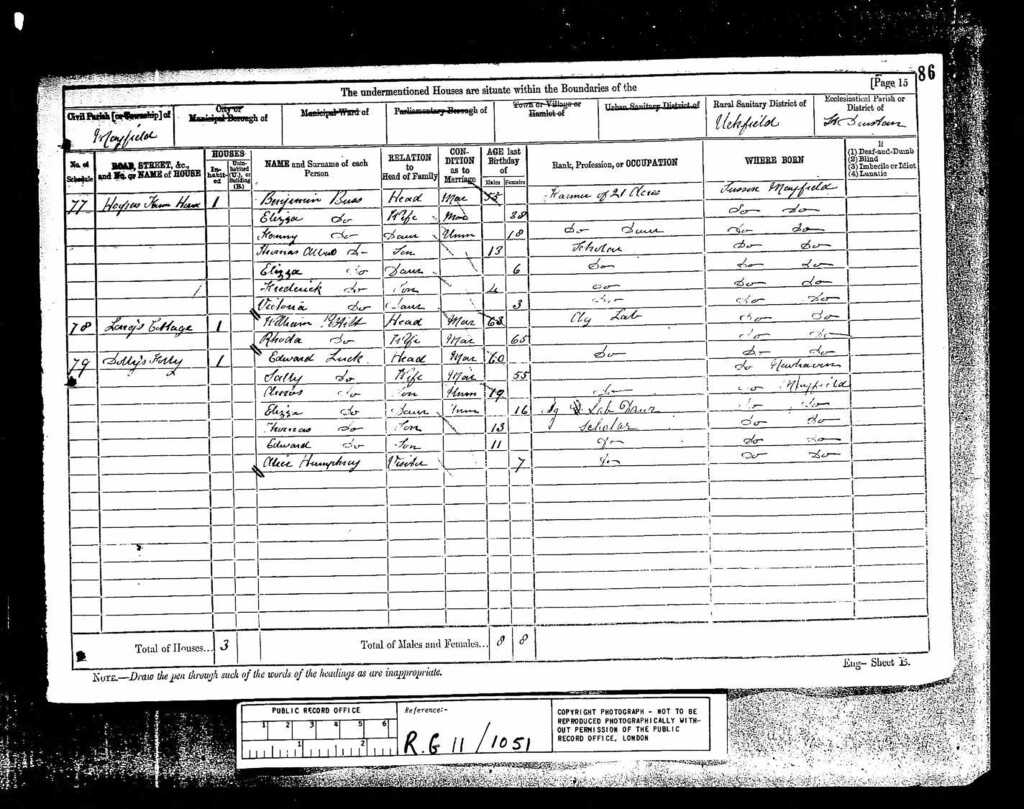 86
The undermentioned Houses are situate within the Boundaries of the [Page 15
Civil Parish [or Township] of City or Municipal Borough of Municipal Ward of Parliamentary Borough of Town or Village or Hamlet of Urban Sanitary District of Rural Sanitary District of Ecclesiastical Parish or District of
Mayfield Uckfield St Dunstan
No. of Schedule ROAD, STREET, &c., and No. or NAME of HOUSE HOUSES Inhabited Uninhabited (U.), or Building (B.) NAME and Surname of each Person RELATION to Head of Family CONDITION as to Marriage AGE last Birthday of Males Females Rank, Profession, or OCCUPATION WHERE BORN If (1) Deaf-and-Dumb (2) Blind (3) Imbecile or Idiot (4) Lunatic
77 Farm 1 Benjamin Buss Head Mar 55 Farmer of 21 Acres Sussex Mayfield
Elizza Do Wife Mar 38 Do Do
Do Daur Unm 18 Do Daur Do Do
Thomas Do Son 13 Scholar Do Do
Elizza Do Daur 6 Do Do Do
Frederick Do Son 4 Do Do Do
Victoria Do Daur 3 Do Do Do
78 Cottage 1 William Head Mar 63 Lab Do Do
Rhoda Do Wife Mar 65 Do Do
79 Dolly's Folly 1 Edward Luck Head Mar 60 Do Do Do
Sally Do Wife Mar 55 Do Newhaven
Do Son Unm 19 Do Do Mayfield
Elizza Do Daur Unm 16 Ag Lab Daur Do Do
Thomas Do Son 13 Scholar Do Do
Edward Do Son 11 Do Do Do
Alice Humphrey Visitor 7 Do Do Do
Total of Houses... 3 Total of Males and Females... 8 8
NOTE.—Draw the pen through such of the words of the headings as are inappropriate.
Eng—Sheet B.
PUBLIC RECORD OFFICE
1 2 3 4 5 6
1 2
Reference:-
R.G 11/1051
COPYRIGHT PHOTOGRAPH - NOT TO BE
REPRODUCED PHOTOGRAPHICALLY WITH-
OUT PERMISSION OF THE PUBLIC
RECORD OFFICE, LONDON